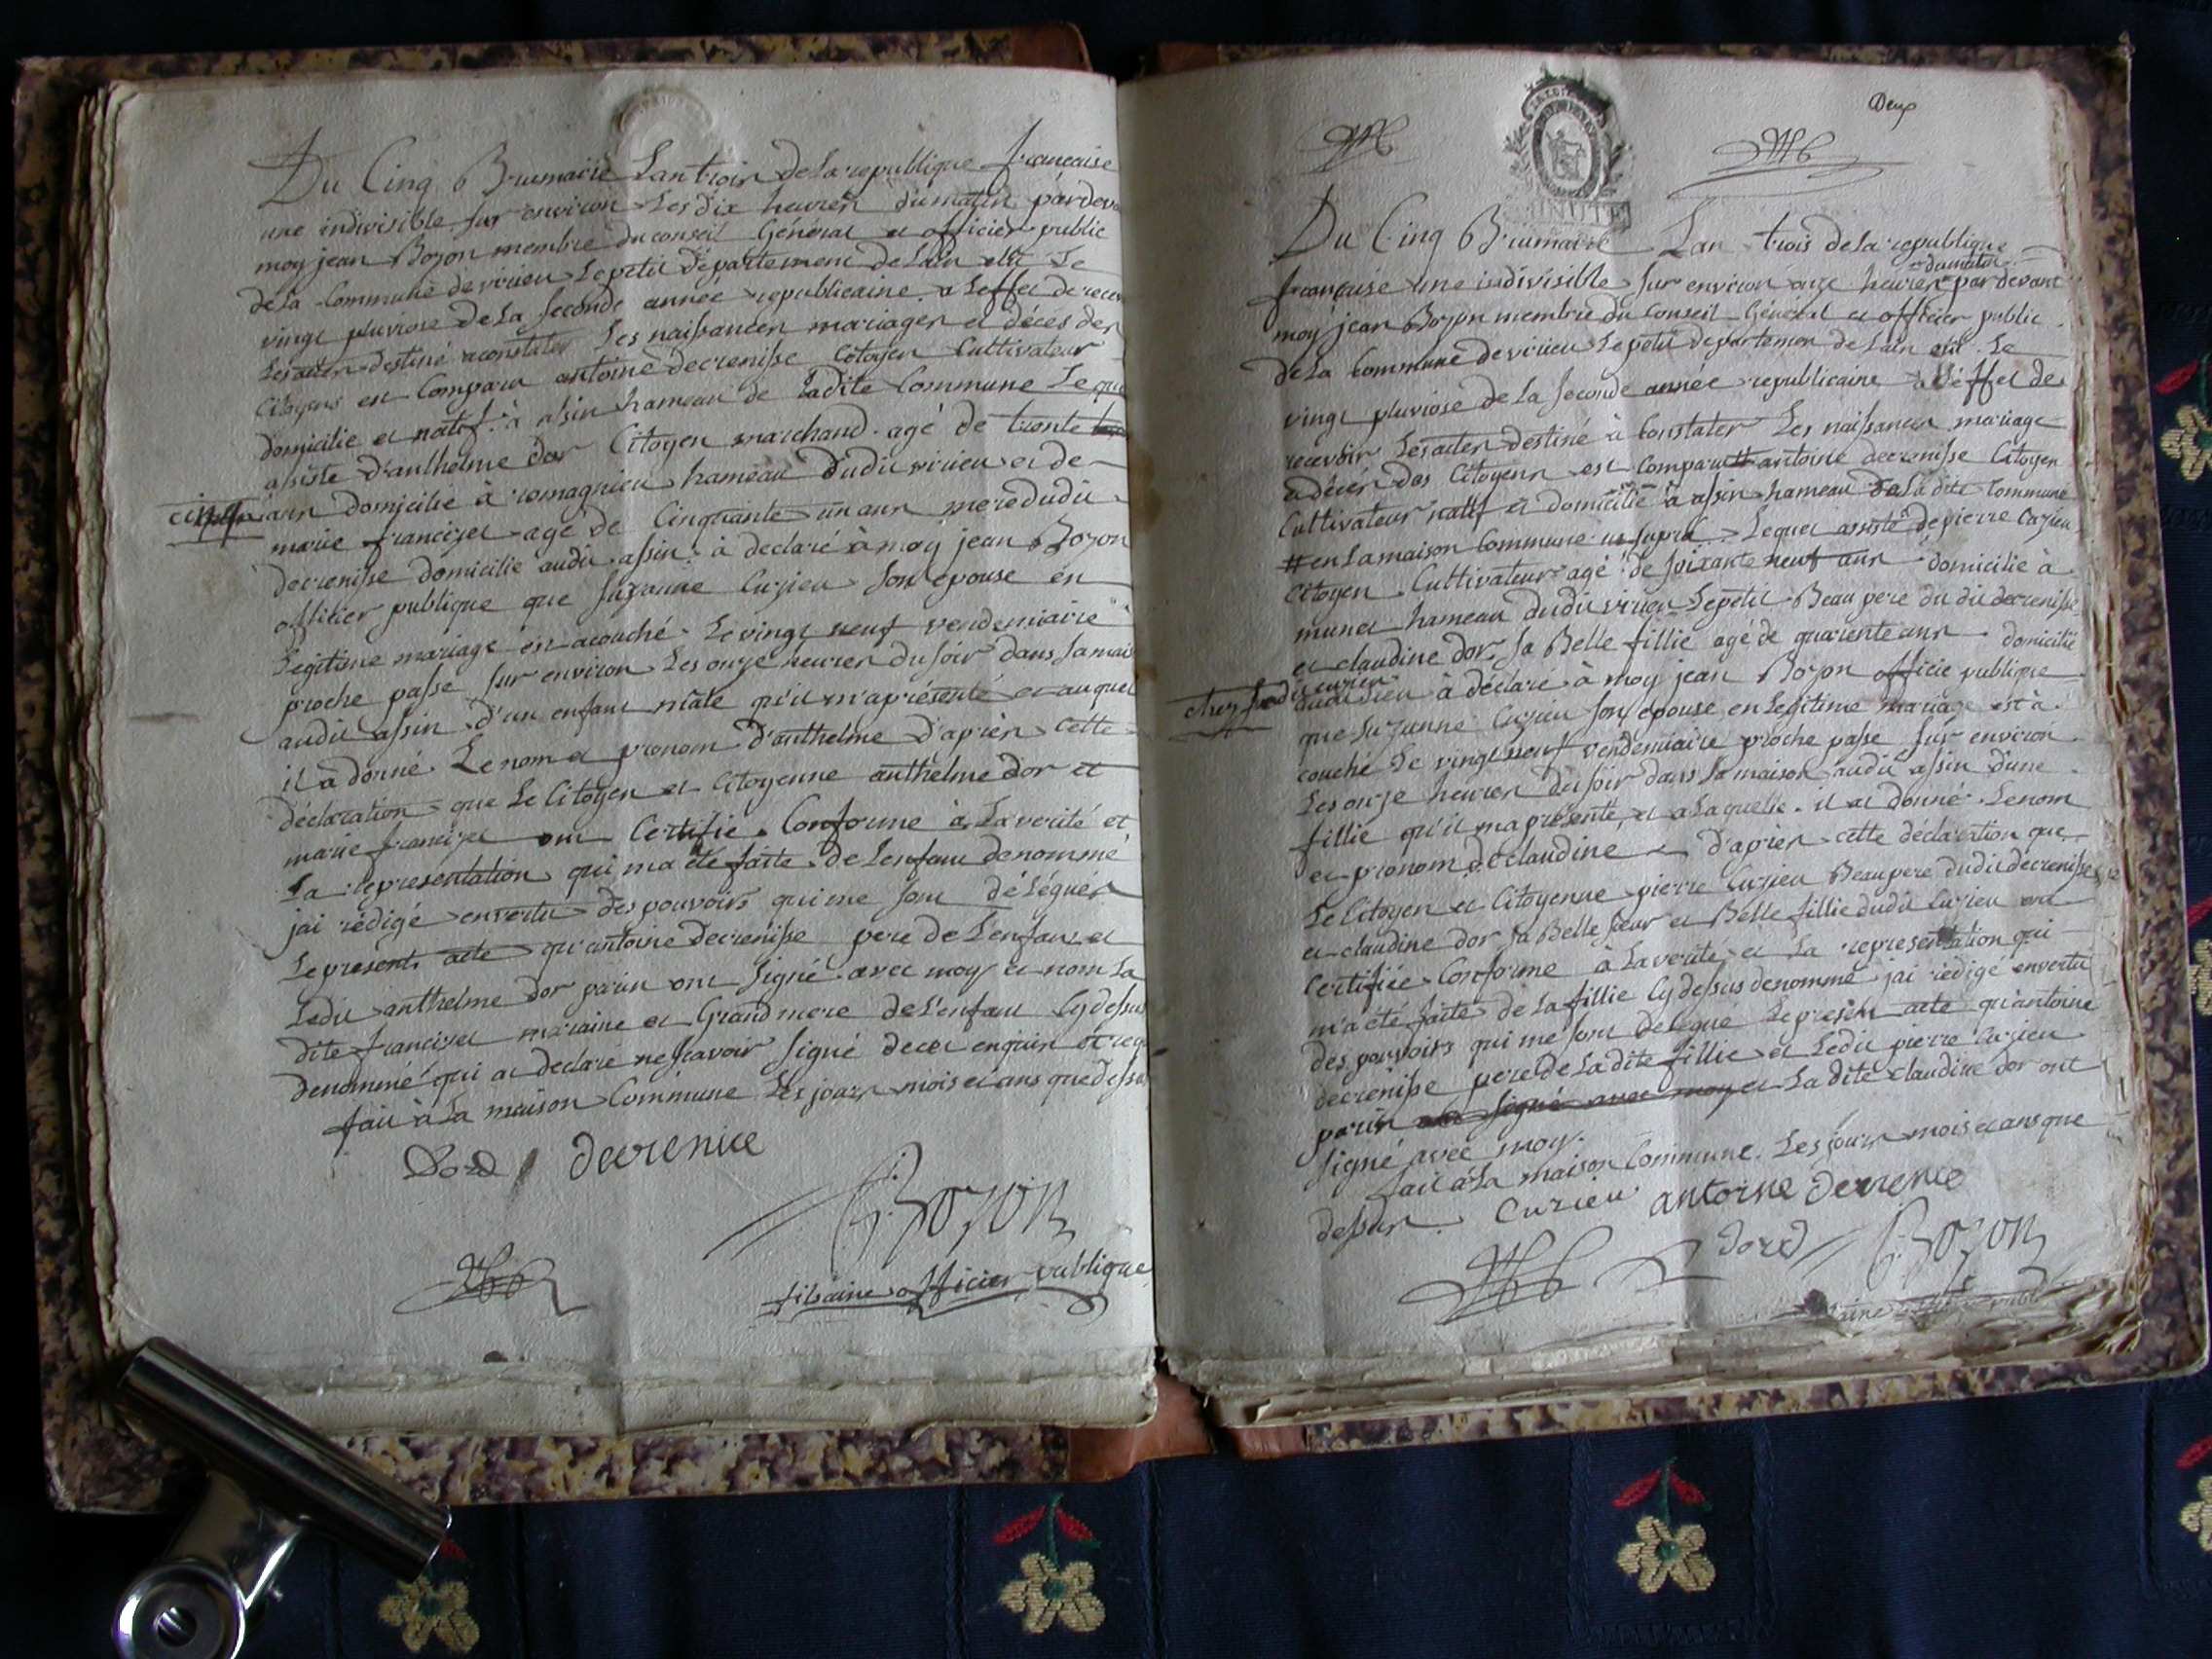 Du Cinq Brumaire Lan trois de La republique française
une indivisible sur environ Les dix heures du matin pardeva
moy jean Bozon membre du conseil Général et officier public
de La Commune de virieu Le petit département de Lain elu Le
vingt pluviose de La seconde année republicaine a Leffet de recev
Les actes destiné a constater Les naissances mariages et décès des
Citoyens est Comparu antoine decrenisse Citoyen Cultivateur
domicilie et natif à assin hameau de Ladite Commune Le quel
assisté d'anthelme dor Citoyen marchand agé de trente
cinq ans domicilié à romagnieu hameau dudit virieu et de
marie francizet agé de Cinquante un ans mere dudit
decrenisse domicilie audit assin à declaré à moy jean Bozon
officier publique que suzanne Curzieu son epouse en
Legitime mariage est acouché Le vingt neuf vendemiaire
proche passe sur environ Les onze heures du soir dans sa mais
audit assin d'un enfant mâle qu'il m'a présenté et auquel
il à donné Le nom et pronom d'anthelme d'après cette
déclaration que Le Citoyen et Citoyenne anthelme dor et
marie francizet ont Certifié Conforme à La verité et
La representation qui ma été faite de Lenfant denommé
jai rédigé en vertu des pouvoirs qui me sont délégués
Le present acte qu'antoine decrenisse pere de Lenfant et
Ledit anthelme dor parin ont signé avec moy et nom La
dite francizet maraine et Grand mere de L'enfant Cy dessus
denommé qui a declaré ne scavoir signé de ce enquis et req
fait à La maison Commune Les jours mois et ans que dessus
Dord decrenice
Bozon
officier publique
Deux
MINUTE
Du Cinq Brumaire Lan trois de La republique
française une indivisible sur environ onze heures du matin par devant
moy jean Bozon membre du Conseil Général et officier public
de La Commune de virieu Le petit departement de Lain elu Le
vingt pluviose de La seconde année republicaine à L'effet de
recevoir Les actes destiné à Constater Les naissances mariage
et décès des Citoyens est comparu # antoine decrenisse Citoyen
Cultivateur natif et domicilié à assin hameau de La dite Commune
# en La maison Commune ut supra Lequel assisté de pierre Curzieu
Citoyen Cultivateur agé de soixante neuf ans domicilié à
munet hameau dudit virieu Le petit Beau pere du dit decrenisse
et claudine dor sa Belle fillie agé de quarente ans domicilié
chez Ledit curzieu audit Lieu à déclaré à moy jean Bozon officie publique
que suzanne Curzieu son epouse en Legitime mariage est à
couché Le vingt neuf vendemiaire proche passe sur environ
Les onze heures du soir dans sa maison audit assin d'une
fillie qu'il ma présenté et a Laquelle il a donné Le nom
et pronom de claudine d'après cette déclaration que
Le Citoyen et Citoyenne pierre Curzieu Beau pere dudit decrenisse
et claudine dor sa Belle soeur et Belle fillie dudit Curzieu ont
Certifiée Conforme à La verité et La representation qui
m'a été faite de La fillie Cy dessus denommé jai rédigé en vertu
des pouvoirs qui me sont delegue Le present acte qu'antoine
decrenisse pere de La dite fillie et Ledit pierre Curzieu
parin ont signé avec moy et La dite claudine dor ont
signé avec moy
fait à La maison Commune Les jours mois et ans que
dessus Curieu antoine decrenice
dord Bozon